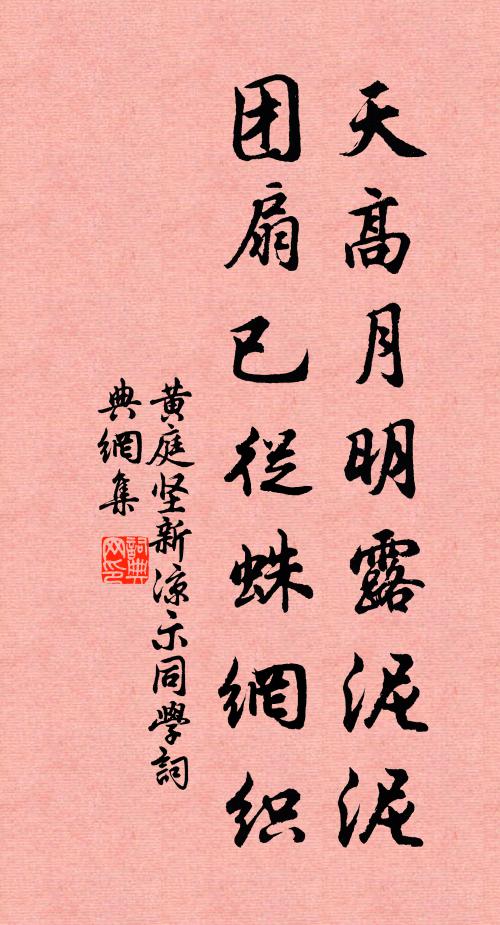 天高月明露泥泥
团扇已從蛛網织
黄庭坚新凉示同學詞
典網集
詞典網印